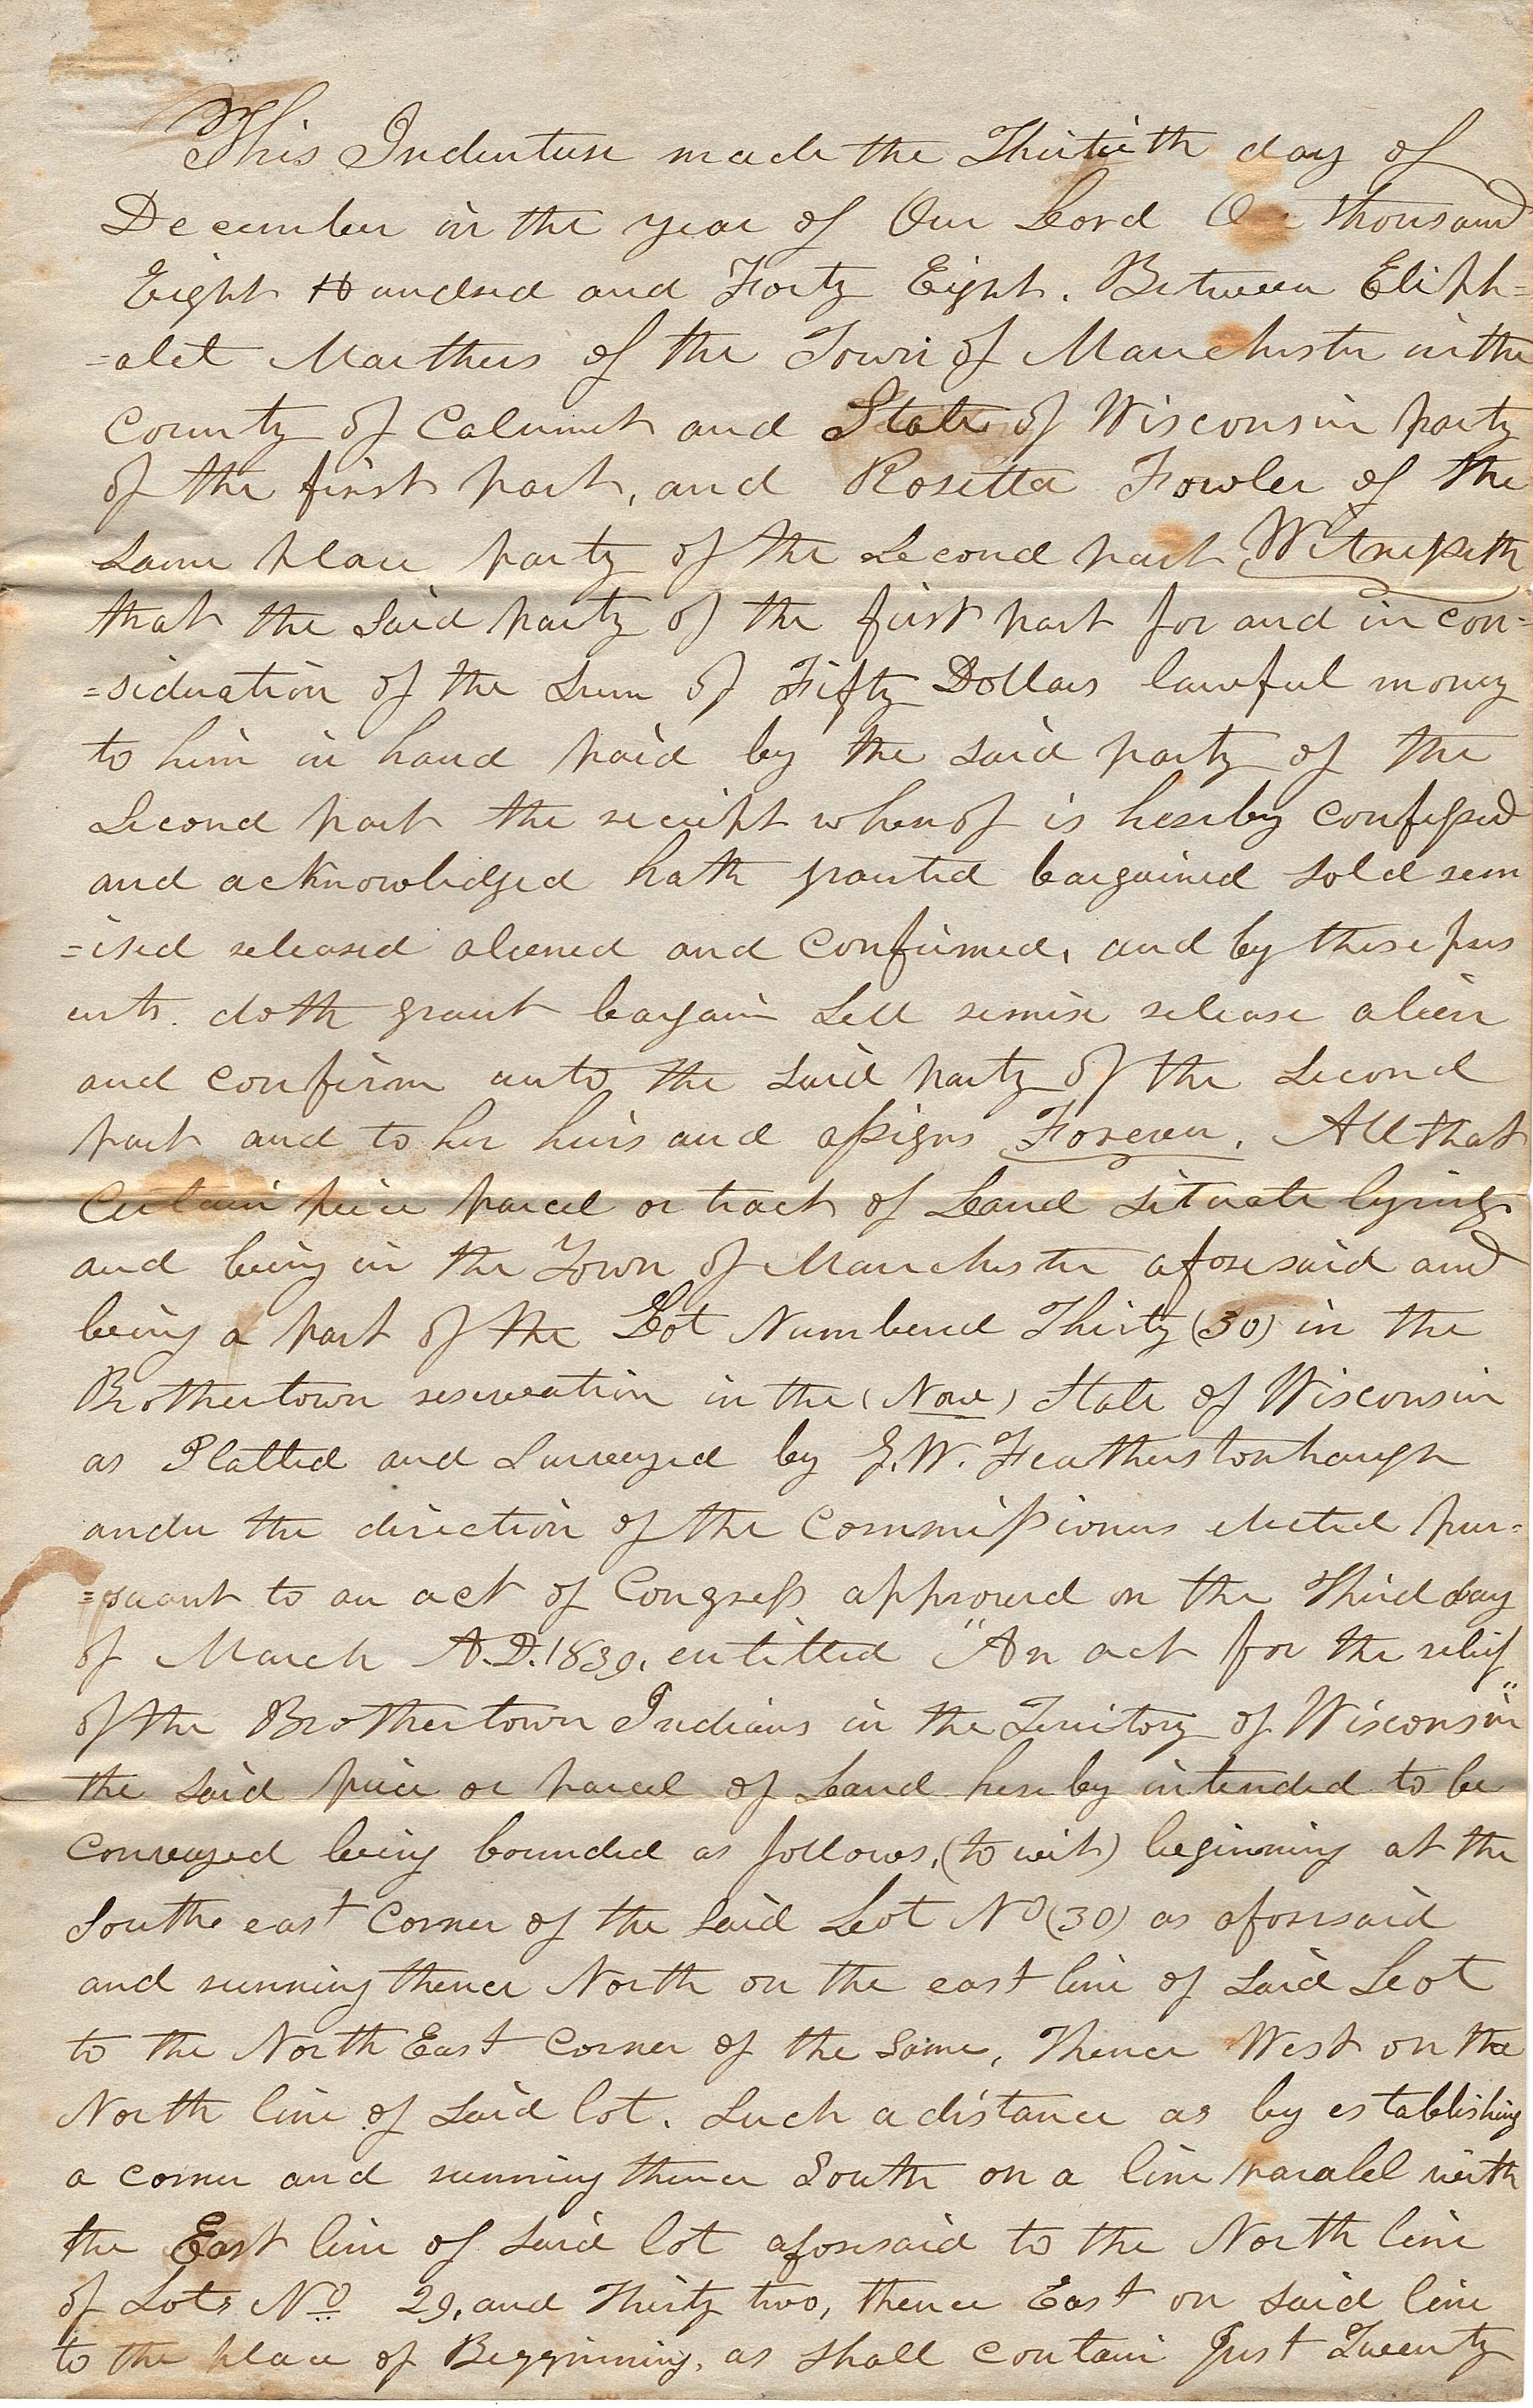 This Indenture made the Thirtieth day of
December in the year of Our Lord One thousand
Eight Hundred and Forty Eight. Between Eliph=
=alet Marthers of the Town of Manchester in the
County of Calumet and State of Wisconsin party
of the first part, and Rosetta Fowler of the
Same place party of the Second part Witnesseth
that the Said party of the first part for and in con=
=sideration of the Sum of Fifty Dollars lawful money
to him in hand paid by the Said party of the
Second part the receipt whereof is hereby confessed
and acknowledged hath granted bargained Sold rem
=ised released aliened and confirmed, and by these pres
ents. doth grant bargain Sell remise release alien
and confirm unto the Said party of the Second
part and to her heirs and assigns Forever. All that
Certain piece parcel or tract of Land Situate lying
and being in the Town of Manchester aforesaid and
being a part of the Lot Numbered Thirty (30) in the
Brothertown reservation in the (Now) State of Wisconsin
as Platted and Surveyed by G.W. Featherstonhaugh
under the direction of the Commissioners elected pur=
=suant to an act of Congress approved on the Third day
of March A.D. 1839. entitled "An act for the relief
of the Brothertown Indians in the Territory of Wisconsin"
the Said piece or parcel of Land hereby intended to be
conveyed being bounded as follows, (to wit) beginning at the
South east Corner of the Said Lot No (30) as aforesaid
and running thence North on the east line of Said Lot
to the North East Corner of the Same, Thence West on the
North line of Said lot. Such a distance as by establishing
a corner and running thence South on a line paralel with
the East line of Said lot aforesaid to the North line
of Lots No 29, and Thirty two, thence East on Said line
to the place of Beggining, as Shall contain Just Twenty